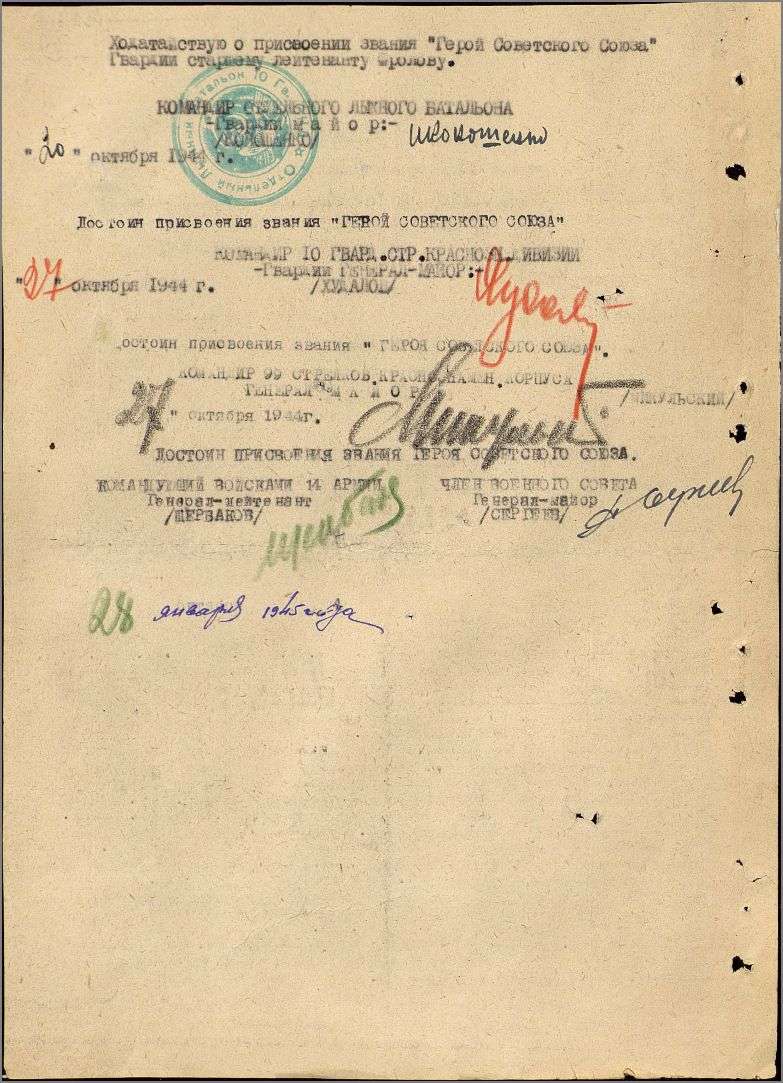 Ходатайствую о присвоении звания "Герой Советского Союза"
Гвардии старшему лейтенанту Фролову.
КОМАНДИР ОТДЕЛЬНОГО ЛЫЖНОГО БАТАЛЬОНА
-Гвардии м а й о р:-
"20" октября 1944 г.
Достоин присвоения звания "ГЕРОЙ СОВЕТСКОГО СОЮЗА"
КОМАНДИР 10 ГВАРД.СТР.КРАСНОЗН.ДИВИЗИИ
-Гвардии ГЕНЕРАЛ-МАЙОР:-
"27" октября 1944 г. /ХУДАЛОВ/
Достоин присвоения звания " ГЕРОЯ СОВЕТСКОГО СОЮЗА".
КОМАНДИР 99 СТРЕЛКОВ.КРАСНОЗНАМЕН.КОРПУСА
ГЕНЕРАЛ - М А Й О Р /МИКУЛЬСКИЙ/
27 " октября 1944г.
ДОСТОИН ПРИСВОЕНИЯ ЗВАНИЯ ГЕРОЯ СОВЕТСКОГО СОЮЗА.
КОМАНДУЮЩИЙ ВОЙСКАМИ 14 АРМИИ ЧЛЕН ВОЕННОГО СОВЕТА
Генерал-лейтенант Генерал-майор
/ЩЕРБАКОВ/ /СЕРГЕЕВ/
28 января 1945 года